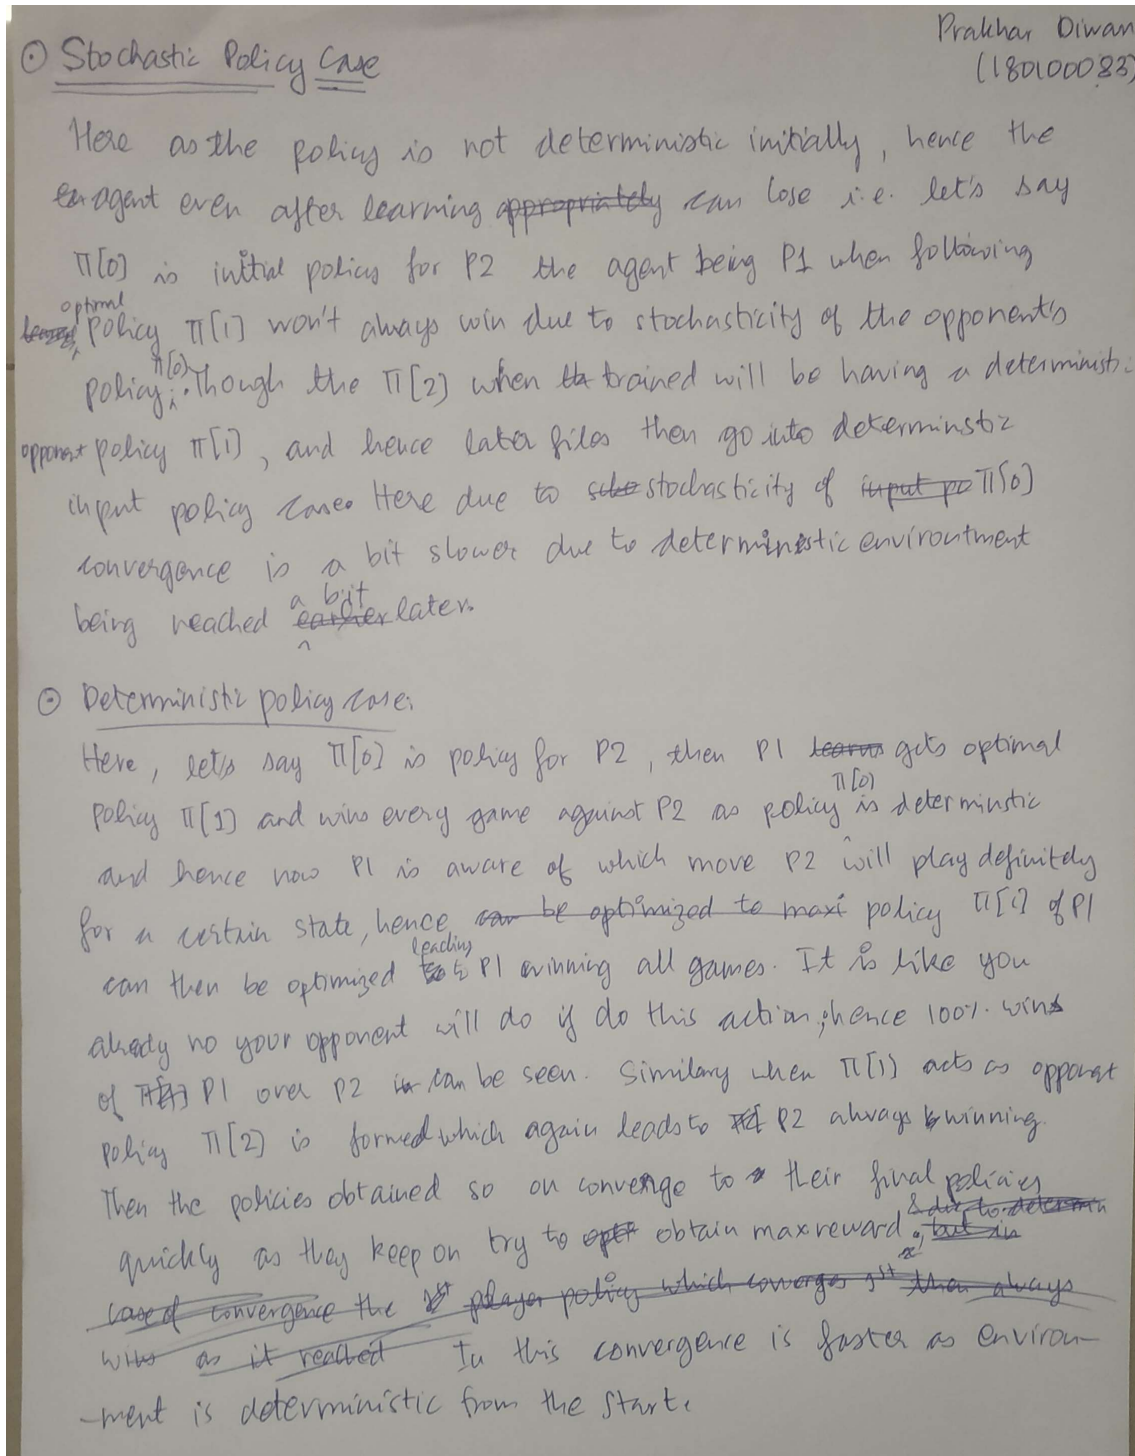 Prakhar Diwan
(180100083)
⊙ Stochastic Policy Case
Here as the policy is not deterministic initially, hence the
agent even after learning appropriately can lose i.e. let's say
π[0] is initial policy for P2 the agent being P1 when following
optimal
policy π[1] won't always win due to stochasticity of the opponent's
π[0]
policy. Though the π[2] when trained will be having a deterministic
opponent policy π[1], and hence later files then go into determinstic
input policy case. Here due to stochasticity of input po π[0]
convergence is a bit slower due to deterministic enviroutment
a bit
being reached earlier later.
⊙ Deterministic policy case:
Here, let's say π[0] is policy for P2, then P1 learns gets optimal
π[0]
policy π[1] and wins every game against P2 as policy is determinstic
and hence now P1 is aware of which move P2 will play definitely
for a certain state, hence can be optimized to maxi policy π[1] of P1
leading
can then be optimized to P1 winning all games. It is like you
alredy no your opponent will do if do this action; hence 100% wins
of P1 over P2 can be seen. Similary when π[1] acts as opponent
policy π[2] is formed which again leads to P2 always winning.
Then the policies obtained so on convenge to their final policies
& due to determin
quickly as they keep on try to obtain max reward. but in
case of convergence the 1st player policy which coverges 1st then always
wins as it reached In this convergence is faster as environ-
-ment is deterministic from the start.